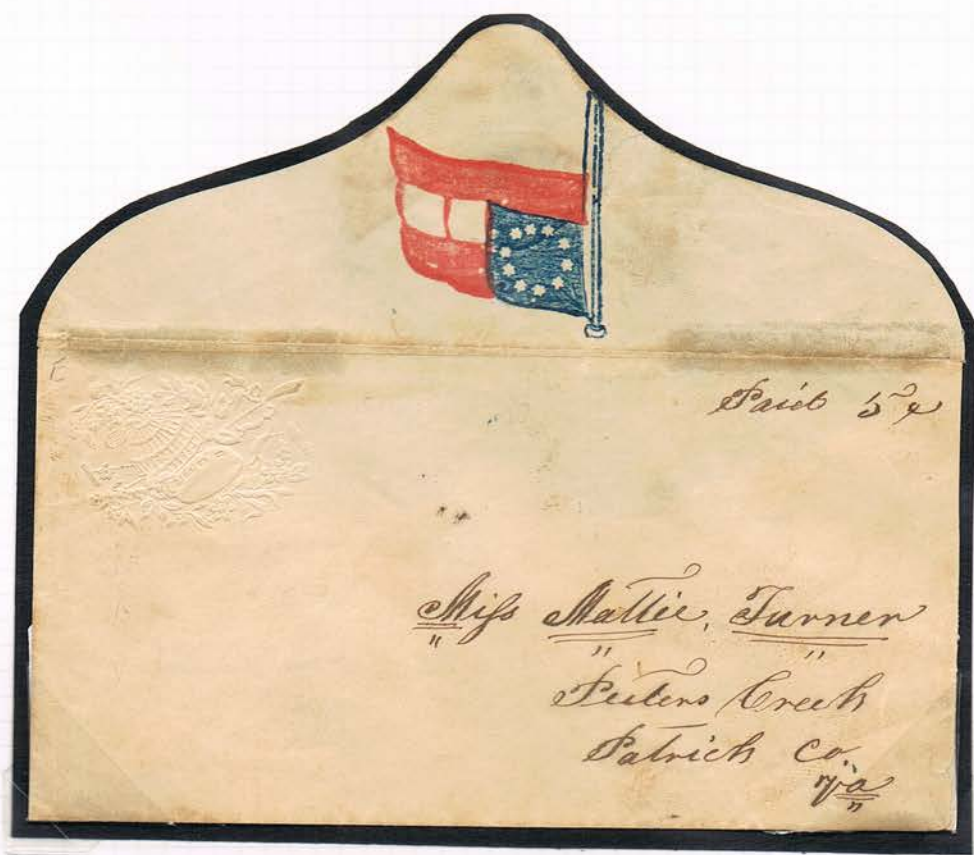 Paid 5¢
Miss Mattie, Turner
Peters Creek
Patrick Co.
Va